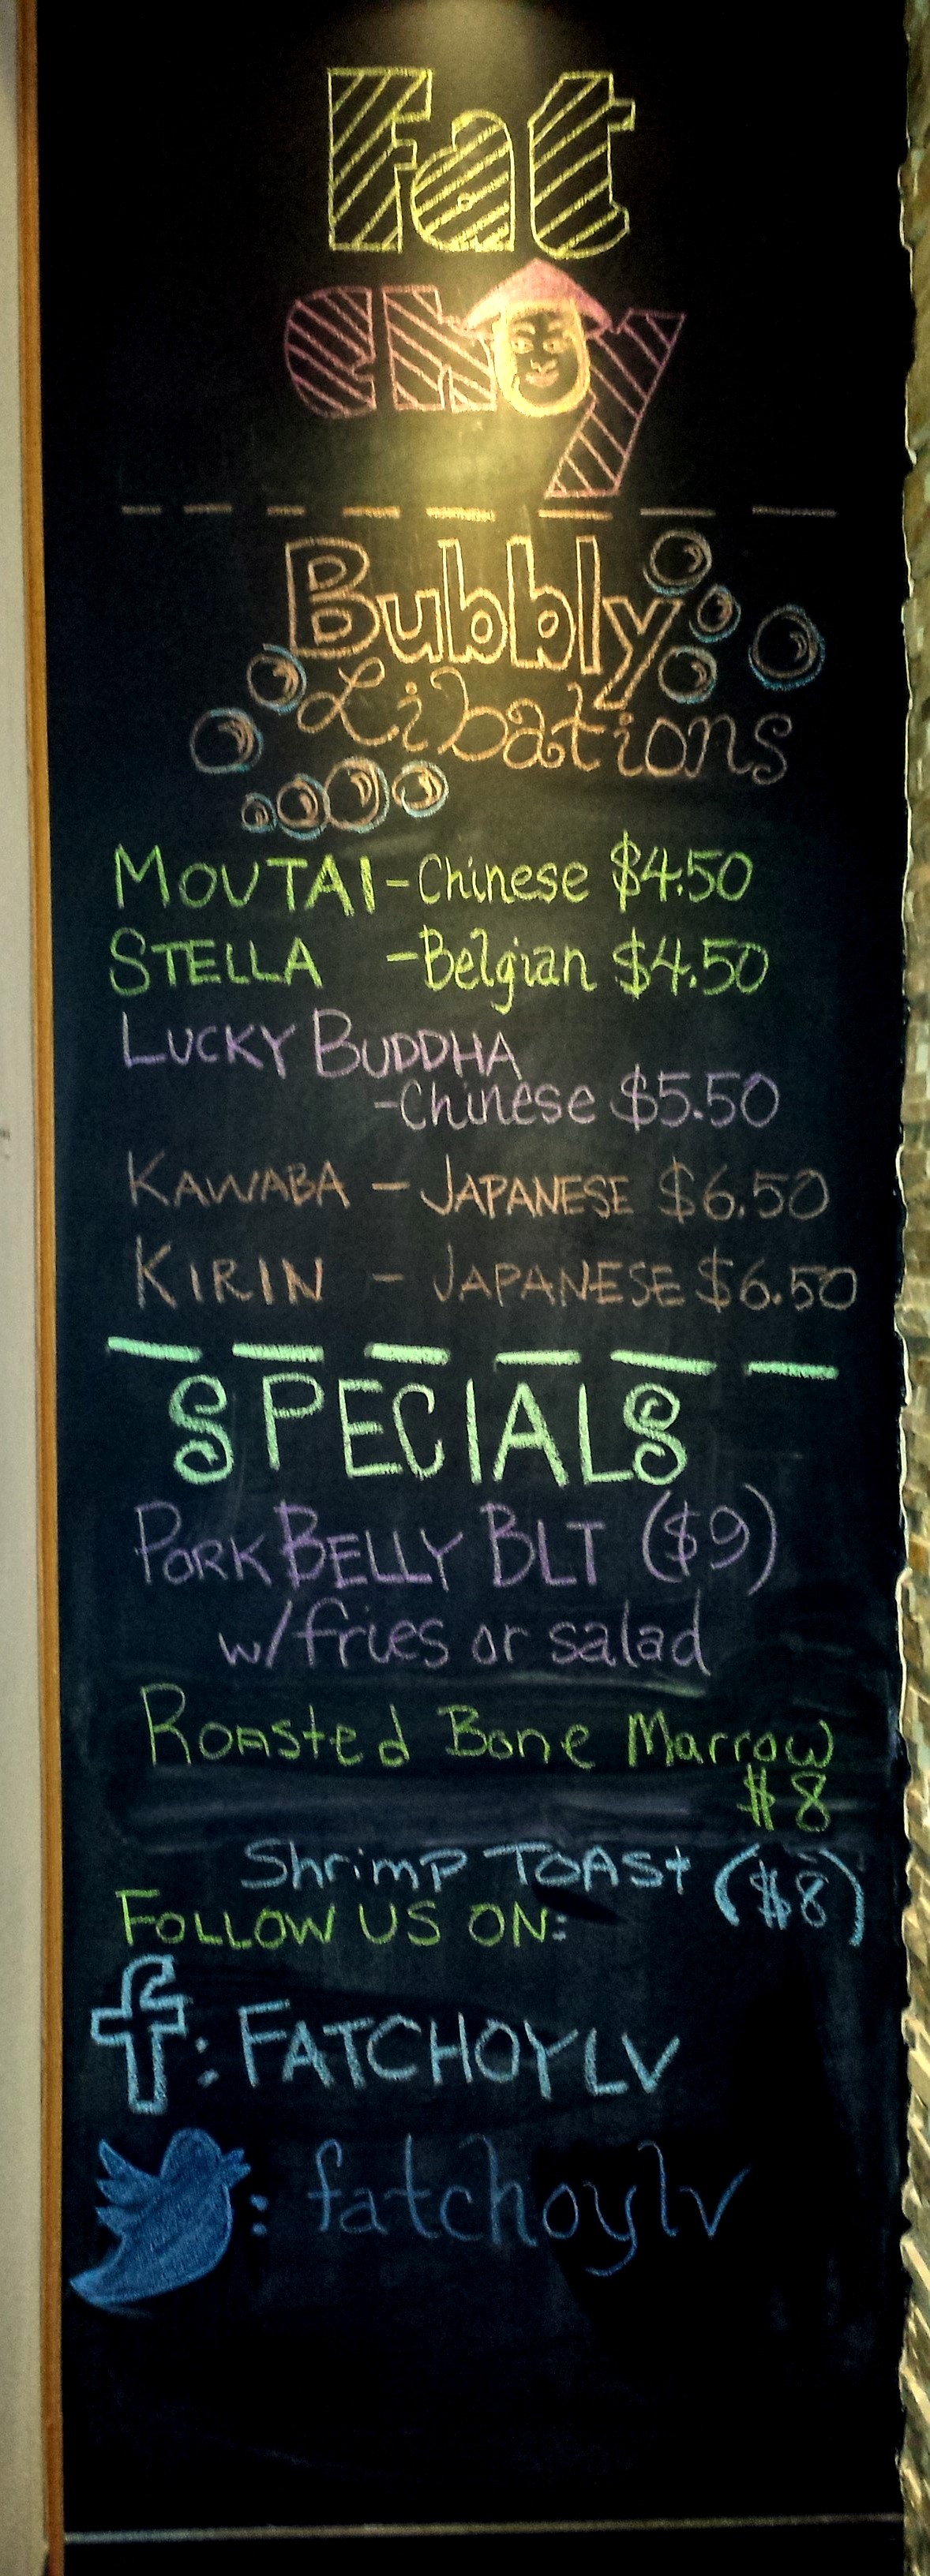 Fat
Choy
Bubbly
Libations
MOUTAI - Chinese $4.50
STELLA - Belgian $4.50
LUCKY BUDDHA
- Chinese $5.50
KAWABA - JAPANESE $6.50
KIRIN - JAPANESE $6.50
SPECIALS
PORK BELLY BLT ($9)
w/fries or salad
Roasted Bone Marrow
$8
Shrimp TOASt ($8)
FOLLOW US ON:
f: FATCHOYLV
: fatchoylv